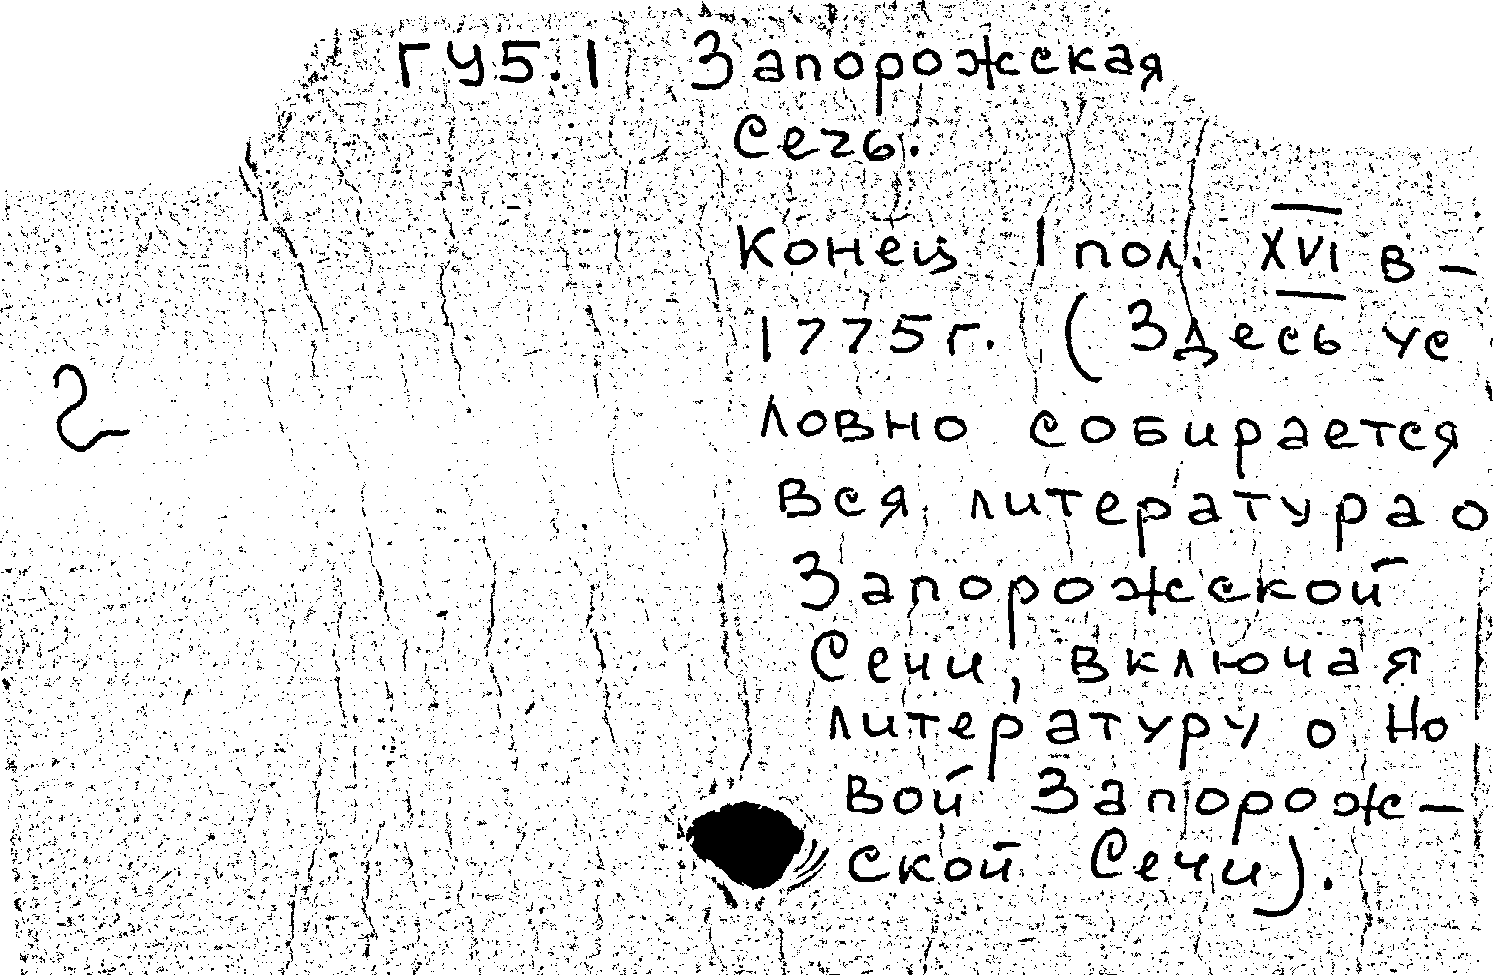 ГУ5.1 Запорожская
Сечь.
Конец 1 пол. XVI в –
1775 г. (Здесь ус
ловно собирается
вся литература о
Запорожской
Сечи, включая
литературу о Но
вой Запорож–
ской Сечи).
2